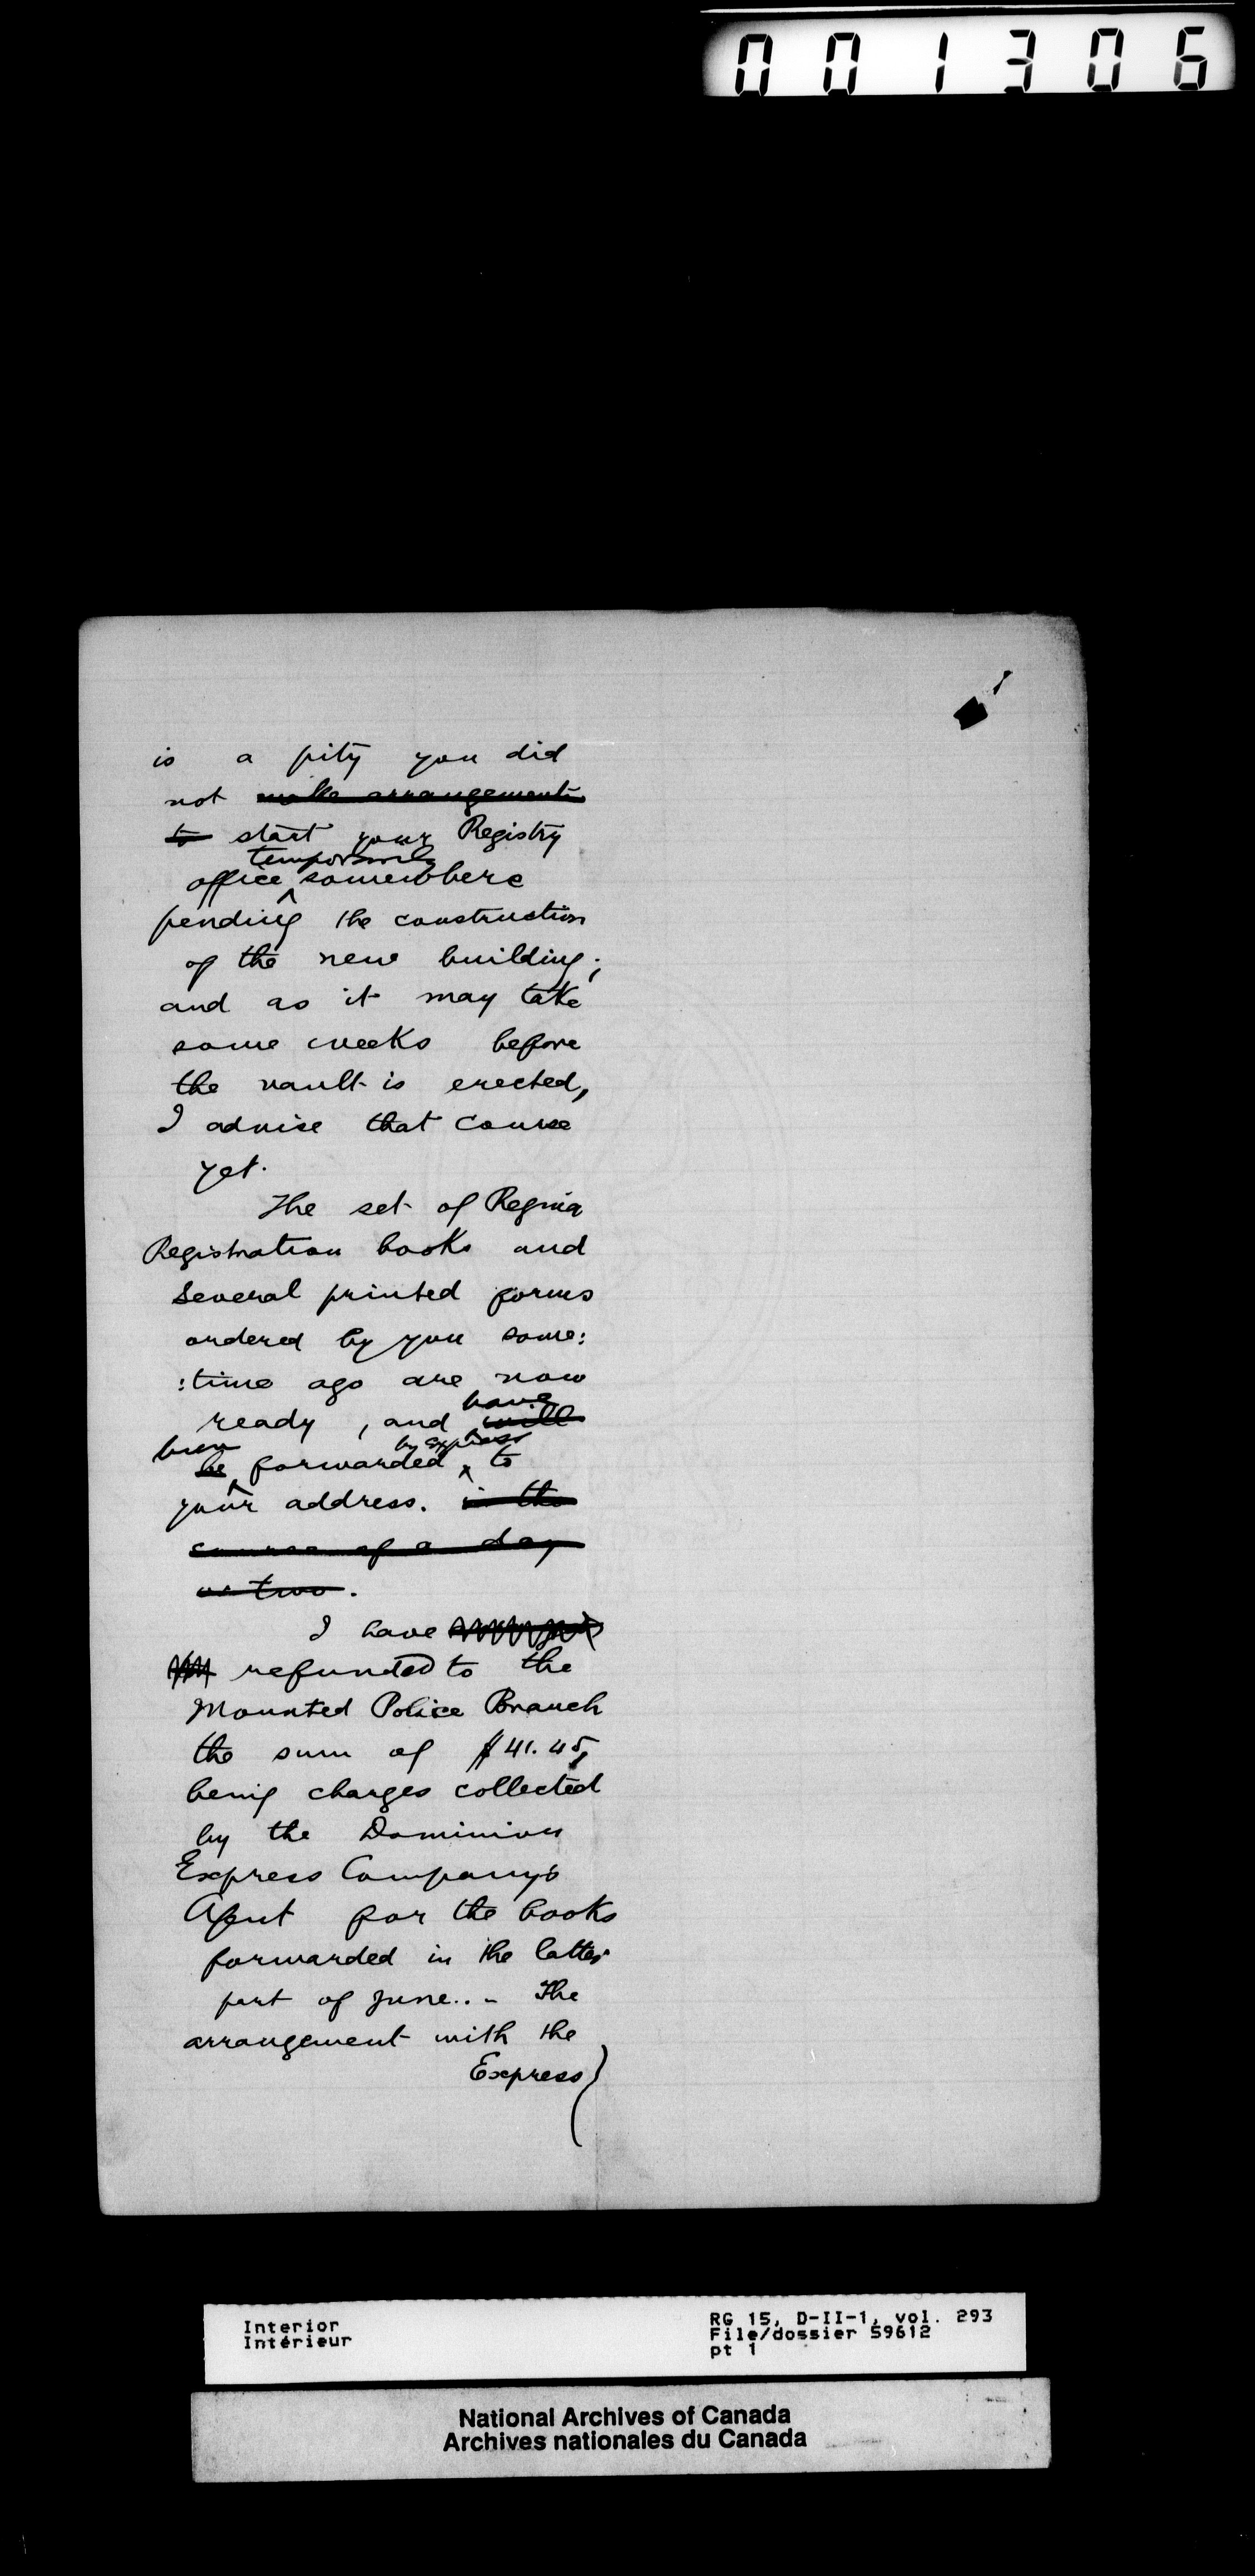 001306
is a pity you did
not make arrangements
to start your Registry
temporarily
office somewhere
pending the construction
of the new building;
and as it may take
some weeks before
the vault is erected,
I advise that course
yet.
The set of Regina
Registration books and
several printed forms
ordered by you some:
:time ago are now
have
ready, and will
been by express
be forwarded to
your address. in the
course of a day
or two.
I have
refunded to the
Mounted Police Branch
the sum of $41.45,
being charges collected
by the Dominion
Express Company's
Agent for the books
forwarded in the latter
part of June.. - The
arrangement with the
Express
Interior
Intérieur
RG 15, D-II-1, vol. 293
File/dossier 59612
pt 1
National Archives of Canada
Archives nationales du Canada